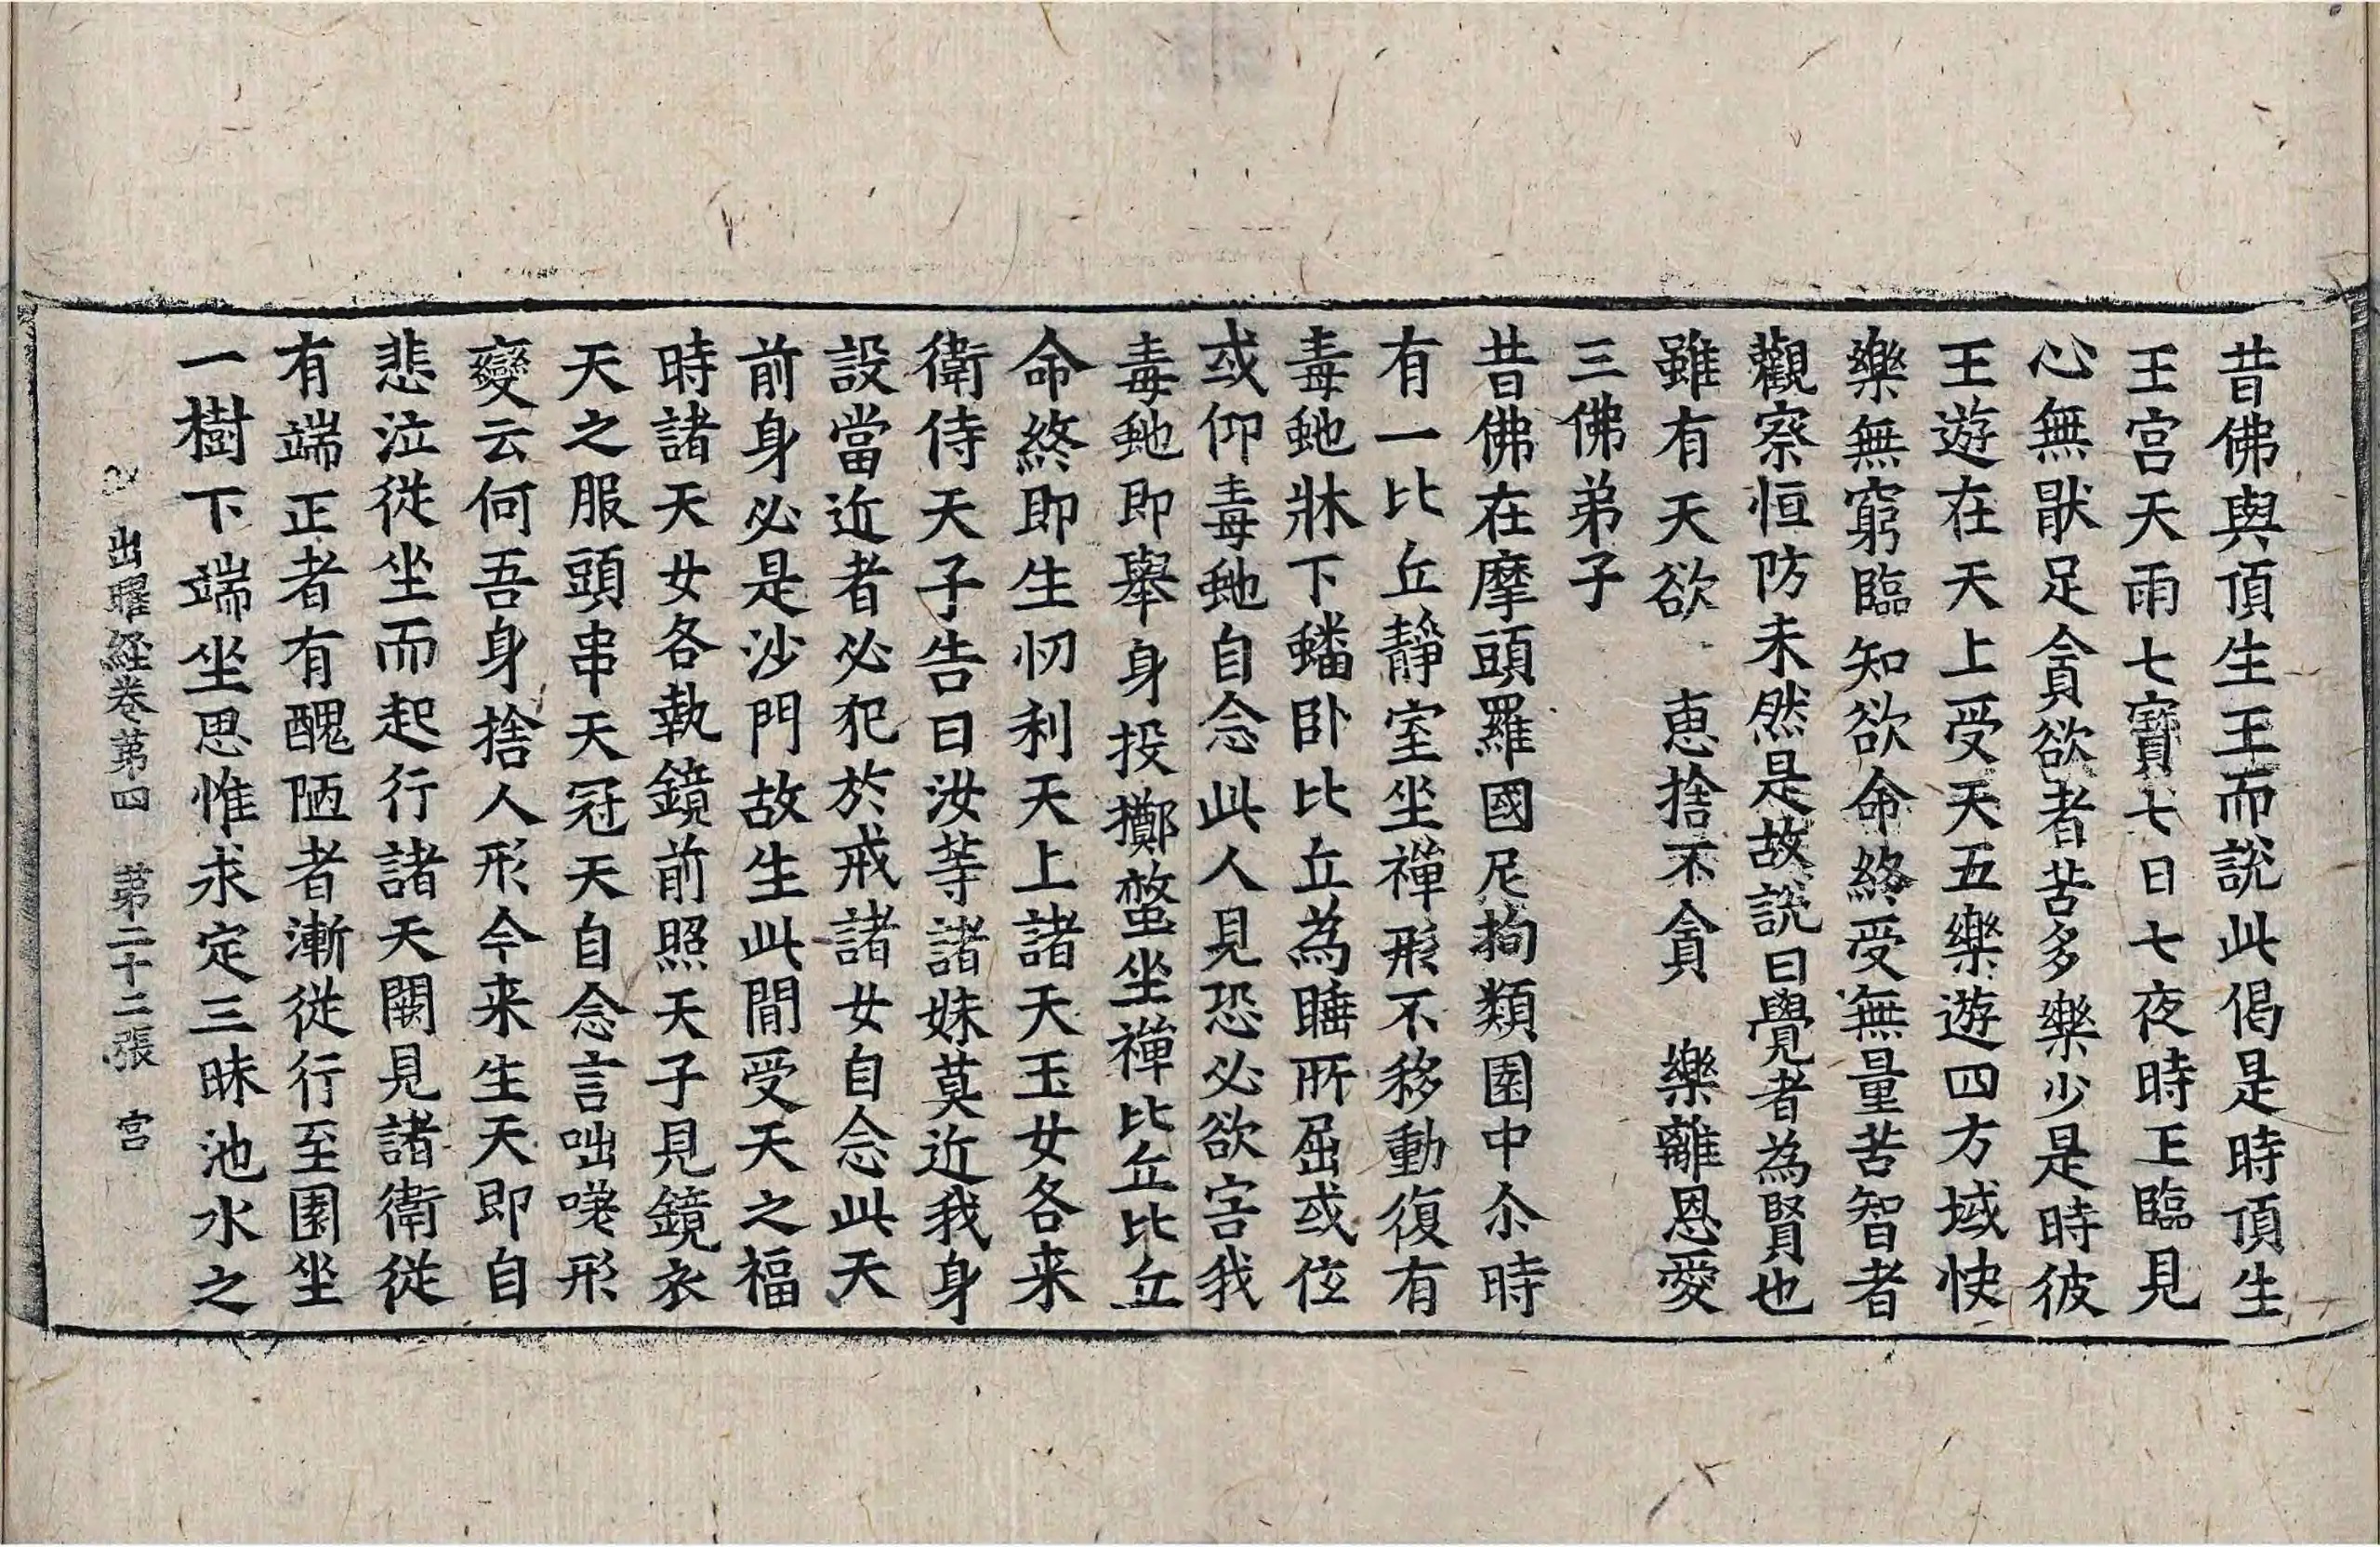 昔佛與頂生王而說此偈是時頂生
王宮天雨七寶七日七夜時王臨見
心無猒足貪欲者苦多樂少是時彼
王遊在天上受天五樂遊四方域快
樂無窮臨知欲命終受無量苦智者
觀察恒防未然是故說曰覺者為賢也
雖有天欲　惠捨不貪　樂離恩愛
三佛弟子
昔佛在摩頭羅國尼拘類園中尒時
有一比丘靜室坐禪形不移動復有
毒虵牀下蟠卧比丘為睡所屈或低
或仰毒虵自念此人見恐必欲害我
毒虵即舉身投擲螫坐禪比丘比丘
命終即生忉利天上諸天玉女各来
衛侍天子告曰汝等諸妹莫近我身
設當近者必犯於戒諸女自念此天
前身必是沙門故生此間受天之福
時諸天女各執鏡前照天子見鏡衣
天之服頭串天冠天自念言咄嘆形
變云何吾身捨人形今来生天即自
悲泣從坐而起行諸天闕見諸衛從
有端正者有醜陋者漸從行至園坐
一樹下端坐思惟求定三昧池水之
出曜経卷苐四　苐二十二張　宫